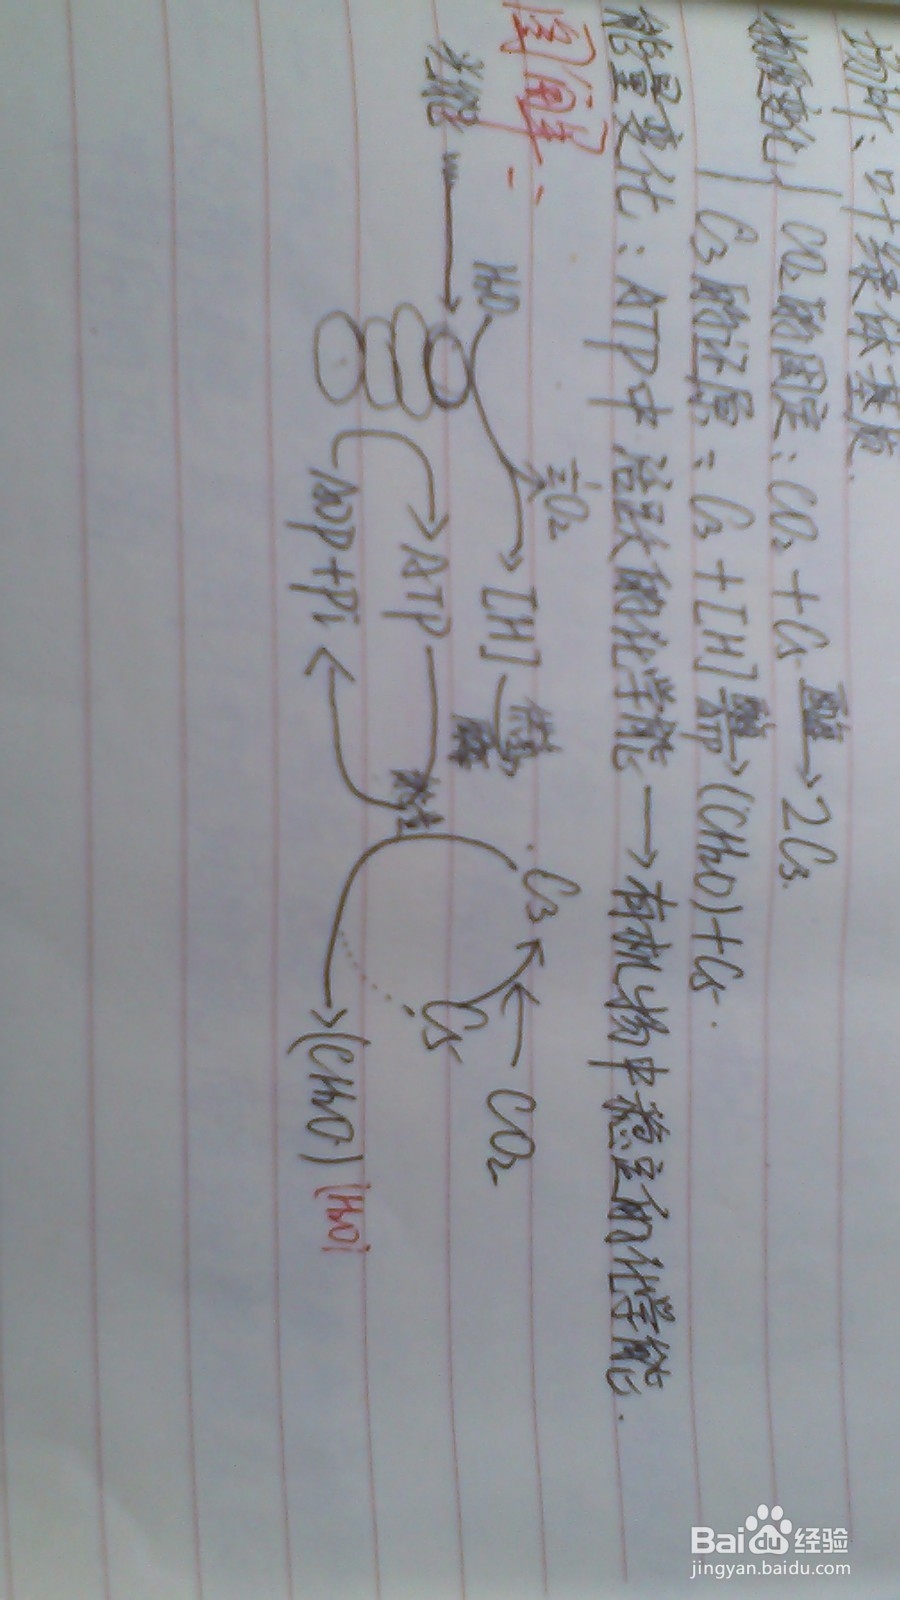 场所：叶绿体基质.
物质变化
CO₂的固定：CO₂+C5 酶→ 2C3.
C3的还原：C3+[H] 酶 ATP→(CH₂O)+C5.
能量变化：ATP中活跃的化学能→有机物中稳定的化学能.
图解：
光能
H₂O
O₂
[H]
供氢
C3
CO₂
C5
ATP
ADP+Pi
(CH₂O)
(H₂O)
Baidu经验
jingyan.baidu.com